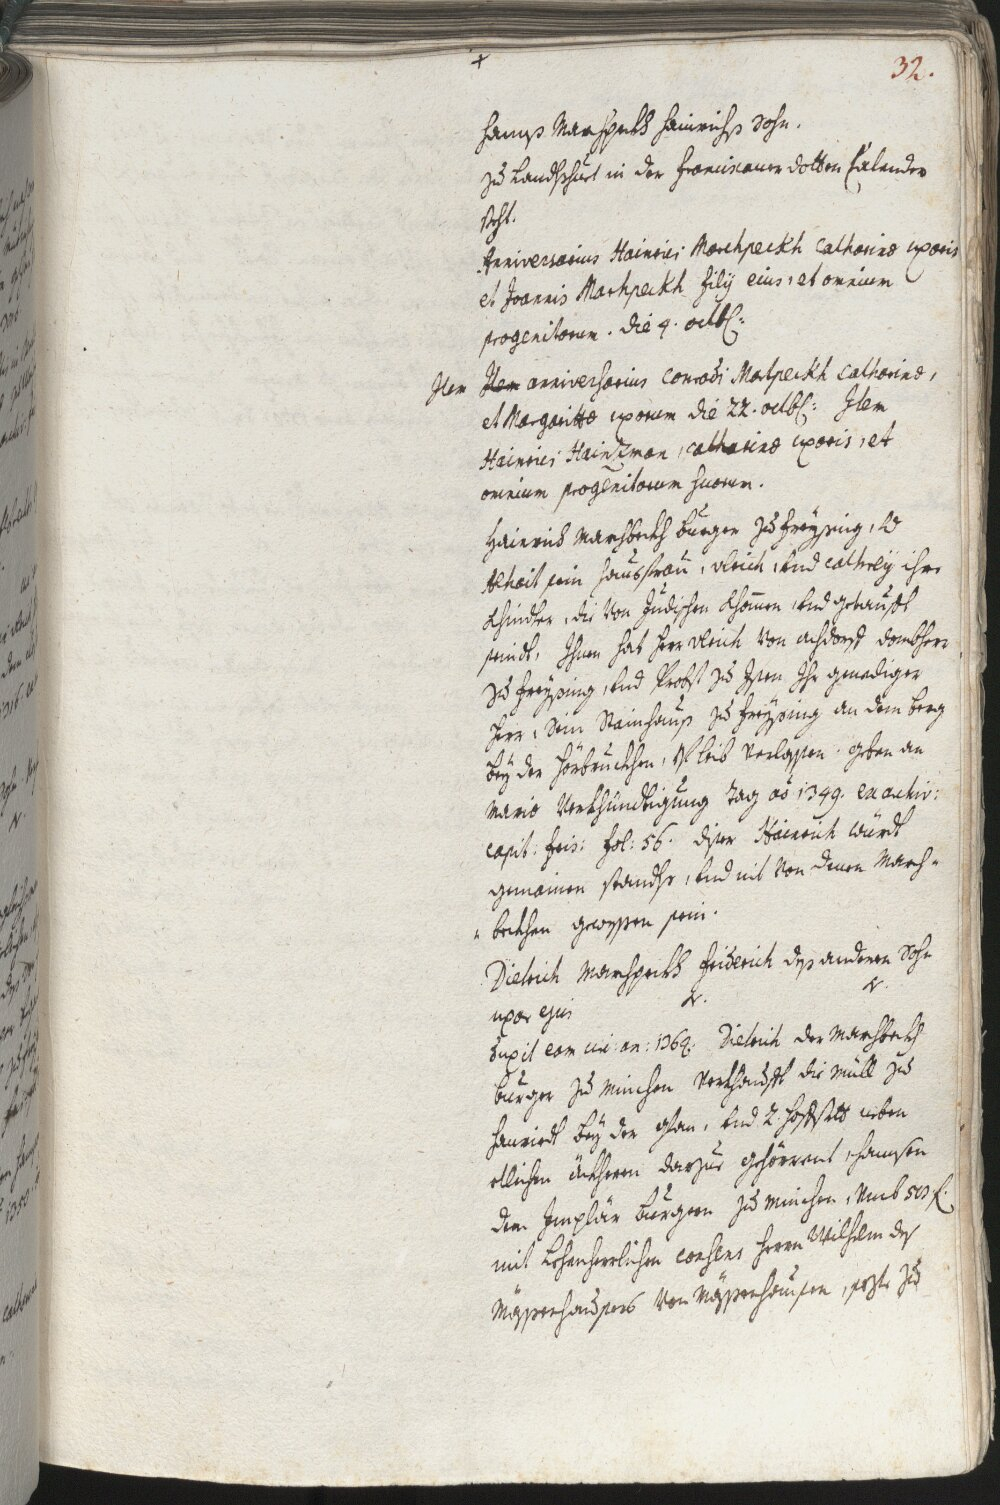 +
32.
Hannß Marchpeckh Hainrichß Sohn.
zu Landßhuet in der Franciscaner dotten Calender
steht.
Anniversarius Hainrici Marchpeckh Catharinæ uxoris
et Joannis Marhpeckh filij eius, et omnium
progenitorum. die 4. octb:
Item Item anniversarius Conradi Marhpeckh Catharinæ,
et Margarittæ uxorum die 22. octb: Item
Hainrici Haintzman, Catharinæ uxoris, et
omnium progenitorum suorum.
Hainrich Marchbeckh burger zu Freysing, vnd
Alhait sein haußfrau, Vlrich, vnd Cathrey ihre
Khinder, die von Judischen khomen, vnd getaufft
seindt, Ihnen hat Herr Vlrich von Achdorff dombherr
zu Freysing, vnd Probst zu Isen Ihr genediger
Herr, Sein Stainhauß zu Freysing an dem berg
bey der Hörbruckhen, vf leib verlassen. geben an
Mariæ Verkhündtigung tag ao 1349. ex archiv:
capit: Fris: fol: 56. diser Hainrich würdt
gemainen standts, vnd nit von denen March-
beckhen gewessen sein.
Dietrich Marchpeckh Friderich deß anderen Sohn
uxor ejus N. N.
duxit eam circ: an: 1364. Dietrich der Marchbeckh
burger zu Minchen verkhaufft die Müll zu
Hanried bey der Glan, vnd 2. hoffstett neben
etlichen äckheren darzue gehörrent, Hannsen
dem Implär burgern zu Minchen, vmb 50 fl.
mit Lehenherrlichen consens Herrn Wilhelm deß
Mässenhausers von Mässenhausen, sezt zu